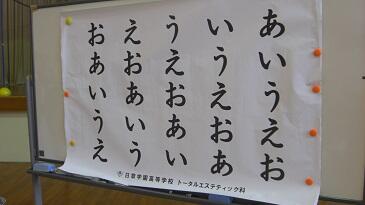 あいうえお
いうえおあ
うえおあい
えおあいう
おあいうえ
日章学園高等学校 トータルエステティック科